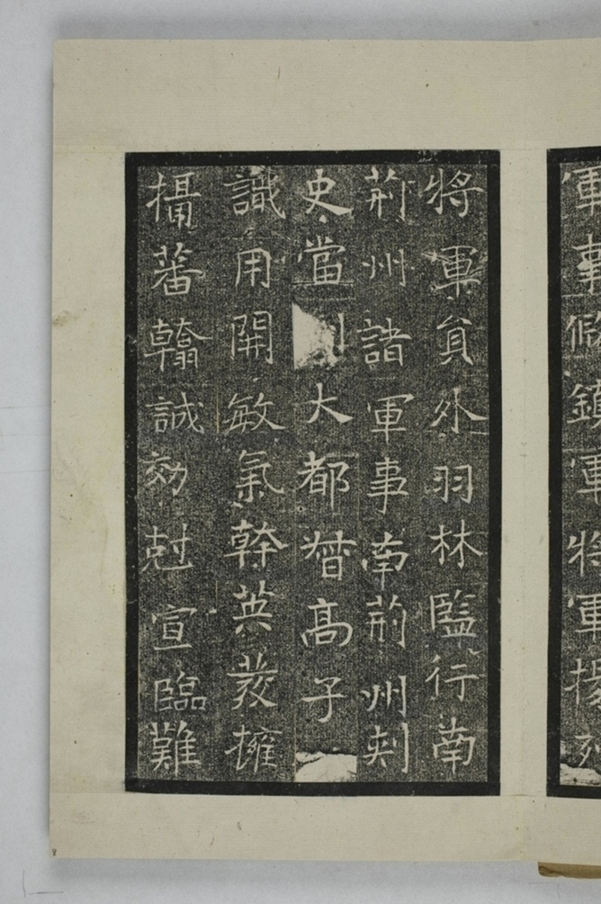 軍事假鎮軍將軍揚
將軍貟外羽林監行南
荊州諸軍事南荊州刺
史當大都督高子
識用開敏氣幹英發擁
攝蕃翰誠効尅宣臨難